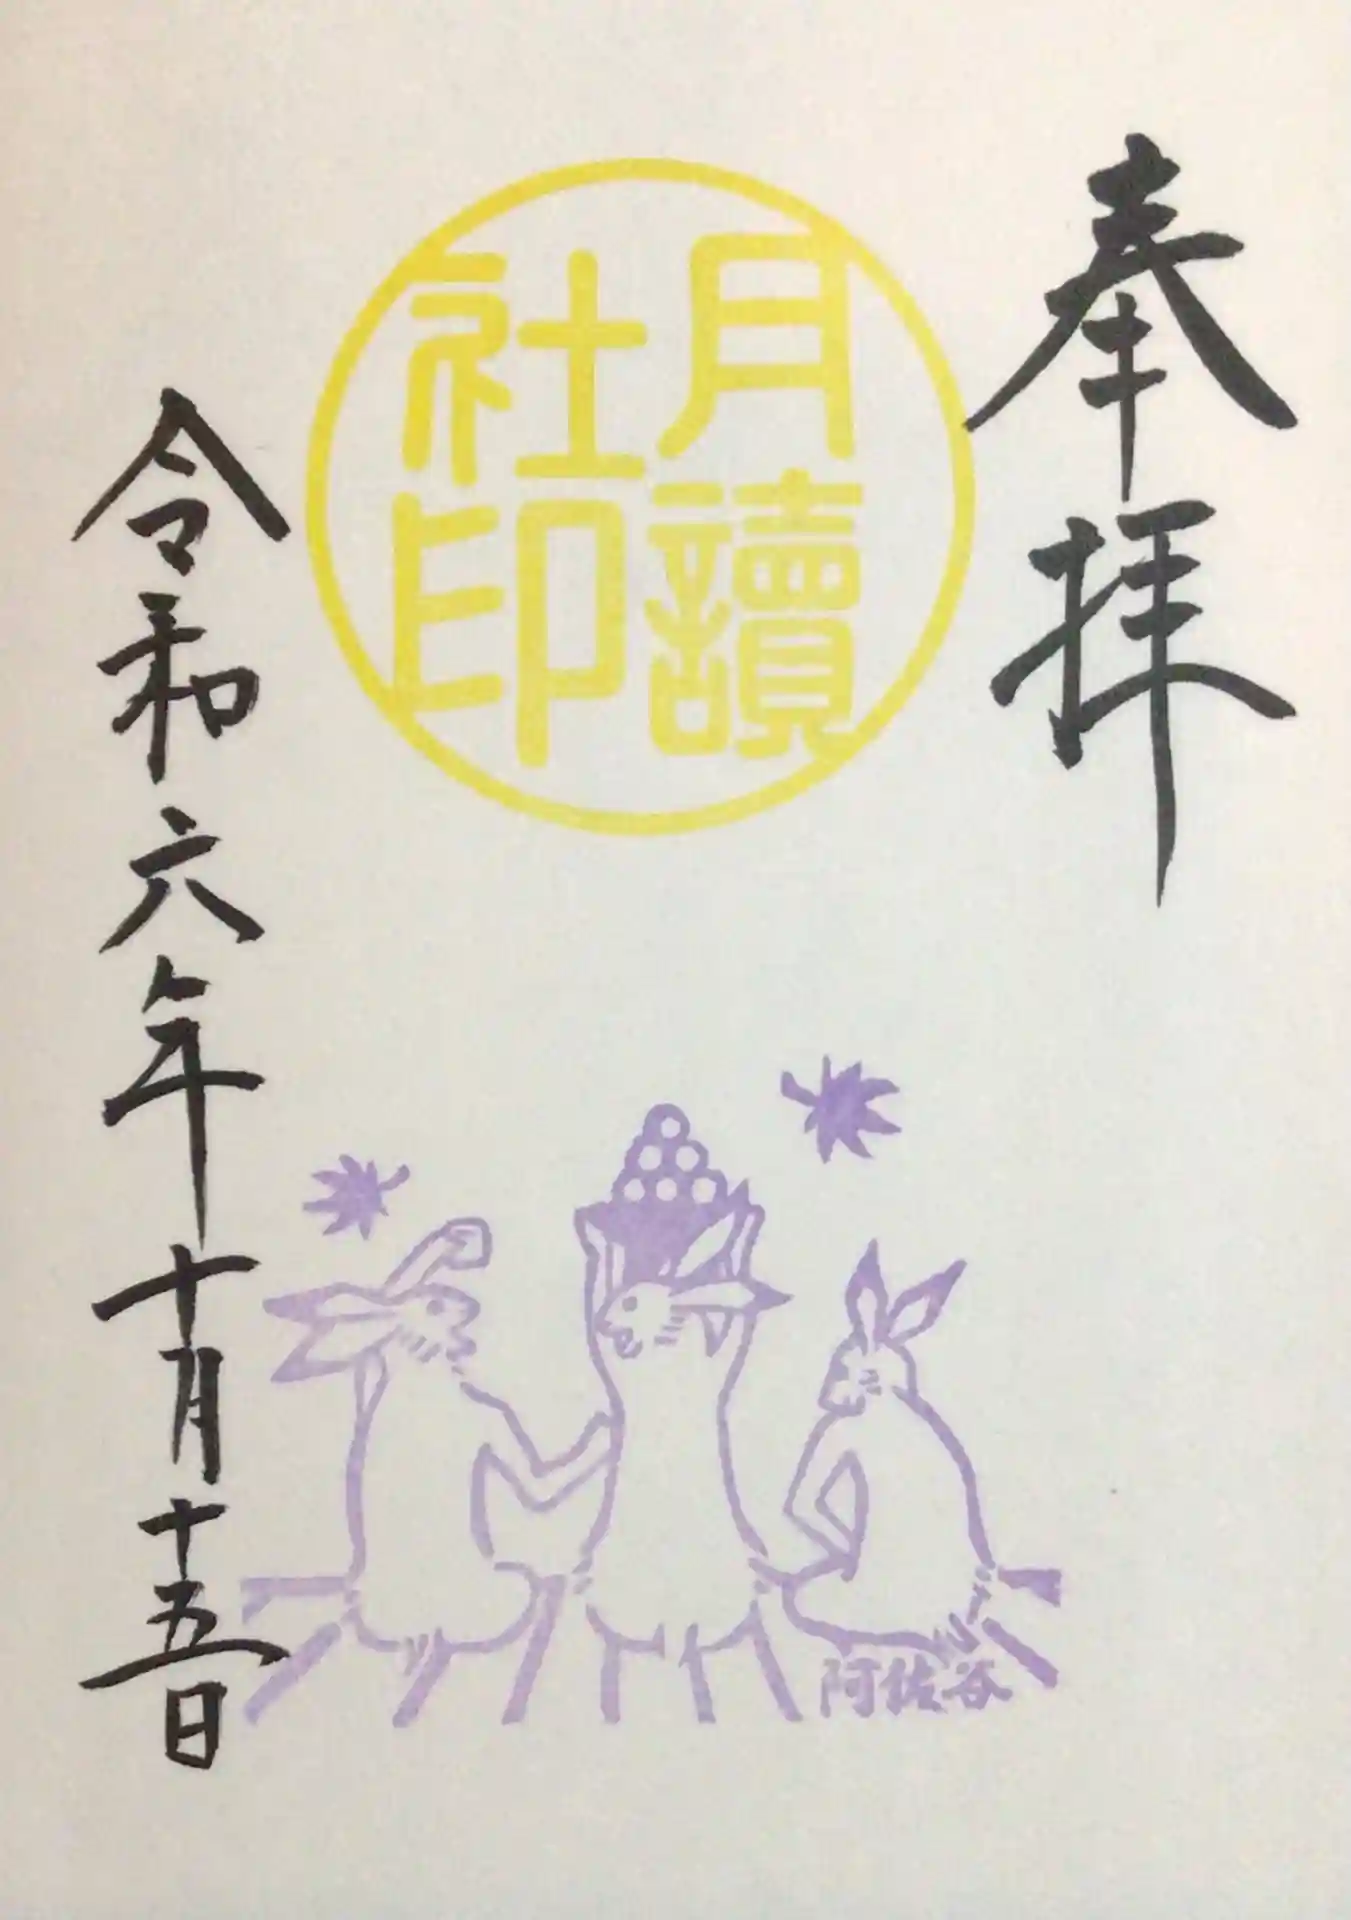 奉拝
月讀
社印
阿佐谷
令和六年十月十五日